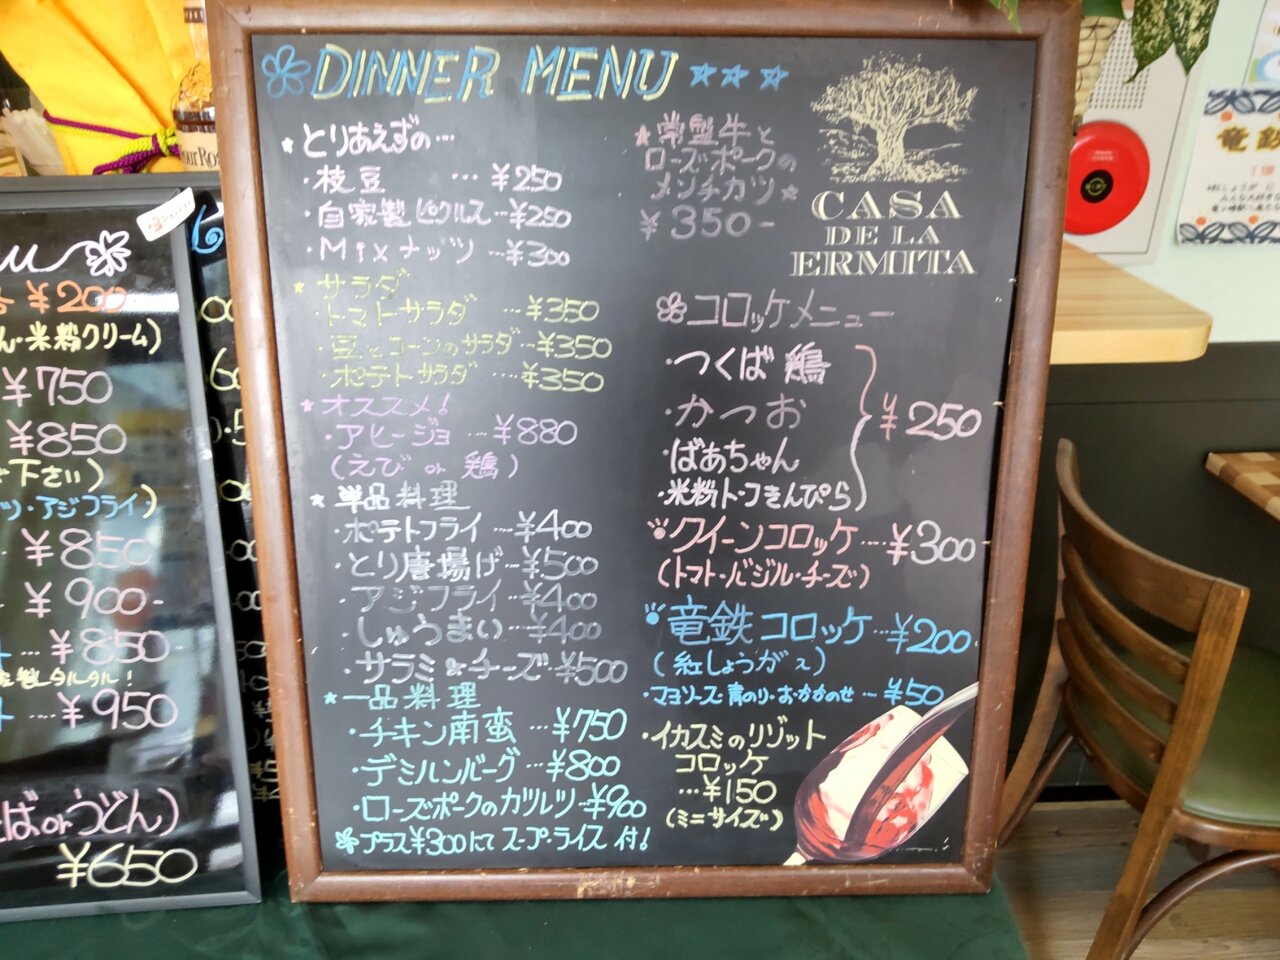 DINNER MENU
とりあえずの…
・枝豆 … ¥250
・自家製ピクルス…¥250
・Mixナッツ …¥300
サラダ
・トマトサラダ …¥350
・豆とコーンのサラダ…¥350
・ポテトサラダ …¥350
オススメ!
・アヒージョ …¥880
(えび or 鶏)
単品料理
・ポテトフライ…¥400
・とり唐揚げ…¥500
・アジフライ…¥400
・しゅうまい…¥400
・サラミ&チーズ…¥500
一品料理
・チキン南蛮 …¥750
・デミハンバーグ …¥800
・ローズポークのカツレツ…¥900
プラス¥300にてスープ・ライス付!
常盤牛と
ローズポークの
メンチカツ
¥350-
CASA
DE LA
ERMITA
コロッケメニュー
・つくば鶏
・かつお
・ばあちゃん
・米粉トーフきんぴら
¥250
クイーンコロッケ…¥300
(トマト・バジル・チーズ)
竜鉄コロッケ…¥200
(紅しょうが入)
・マヨソース・青のり・おかかのせ …¥50
・イカスミのリゾット
コロッケ
…¥150
(ミニサイズ)
¥200
米粉クリーム)
¥750
¥850
下さい)
アジフライ)
¥850
¥900-
¥850
製タルタル!
…¥950
そばorうどん)
¥650
竜鉄